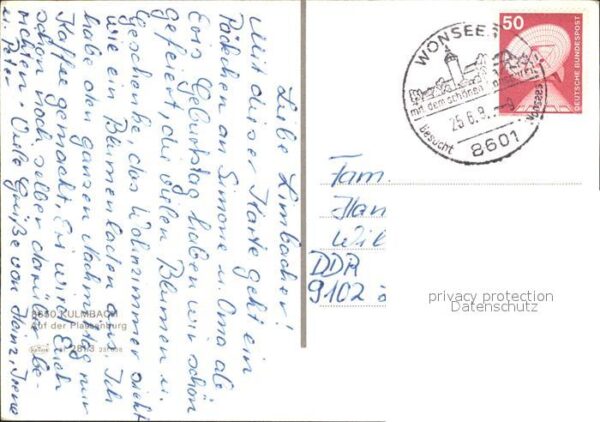 Liebe Limbacher!
Mit dieser Karte geht ein
Päckchen an Simone u. Oma ab
Evis Geburtstag haben wir schön
gefeiert, die vielen Blumen u.
Geschenke, das Wohnzimmer sieht
wie ein Blumenladen aus. Ich
habe den ganzen Nachmittag nur
Kaffee gemacht. Evi wird Euch
schon noch selber darüber be-
richten. Viele Grüße von Heinz, Irene
u. Peter
8650 KULMBACH
Auf der Plassenburg
2813
50
DEUTSCHE BUNDESPOST
WONSEES
mit dem schönen
Besucht Wonsees
25.6.8
8601
Fam.
Han
Wil
DDR
9102
privacy protection
Datenschutz